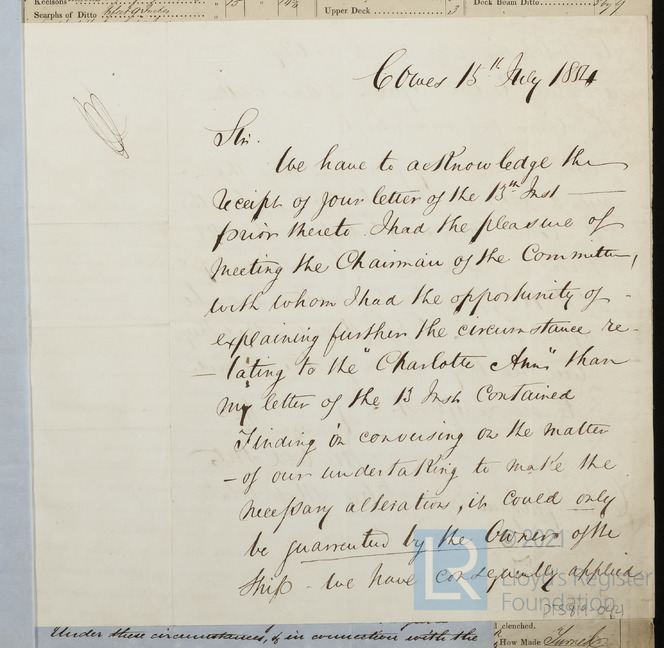 Keelsons
Scarphs of Ditto
Upper Deck 3
Deck Beam Ditto
Cowes 15th July 1854
Sir.
We have to acknowledge the
receipt of your letter of the 13th Inst
prior thereto I had the pleasure of
meeting the Chairman of the Committee,
with whom I had the opportunity of -
explaining further the circumstance re-
- lating to the "Charlotte Ann" than
my letter of the 13 Inst contained
Finding in conversing on the matter
- of our undertaking to make the
necessary alterations, it could only
be guarrenteed by the Owners of the
Ship - We have consequently applied
© 2021
LR
Lloyd's Register
Foundation
Under these circumstances, & in connection with the
clenched.
How Made